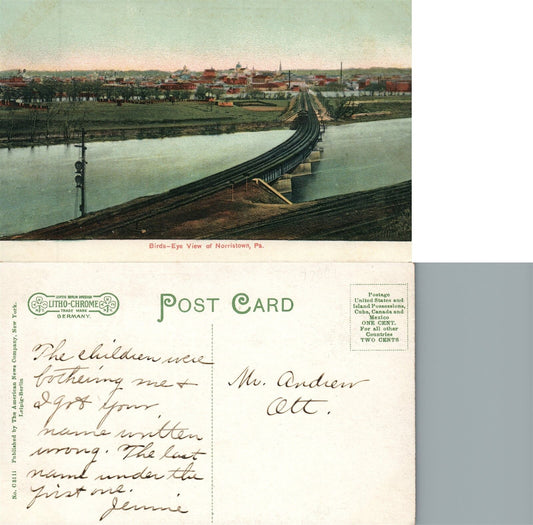 Birds-Eye View of Norristown, Pa.
LITHO-CHROME
TRADE MARK
GERMANY.
POST CARD
Postage
United States and
Island Possessions,
Cuba, Canada and
Mexico
ONE CENT.
For all other
Countries
TWO CENTS
No. C2111 Published by The American News Company, New York.
Leipzig-Berlin
The children were
bothering me &
I got your
name written
wrong. The last
name under the
first one.
Jennie
Mr. Andrew
Ott.